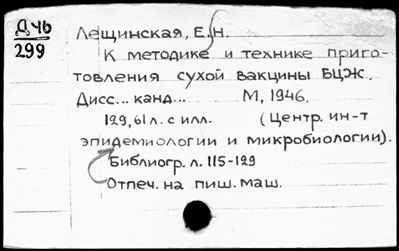 Дч6
299
Лещинская, Е.Н.
К методике и технике приго-
товления сухой вакцины БЦЖ.
Дисс... канд... М, 1946.
129, 61 л. с илл. (Центр. ин-т
эпидемиологии и микробиологии).
Библиогр. л. 115-129
Отпеч. на пиш. маш.